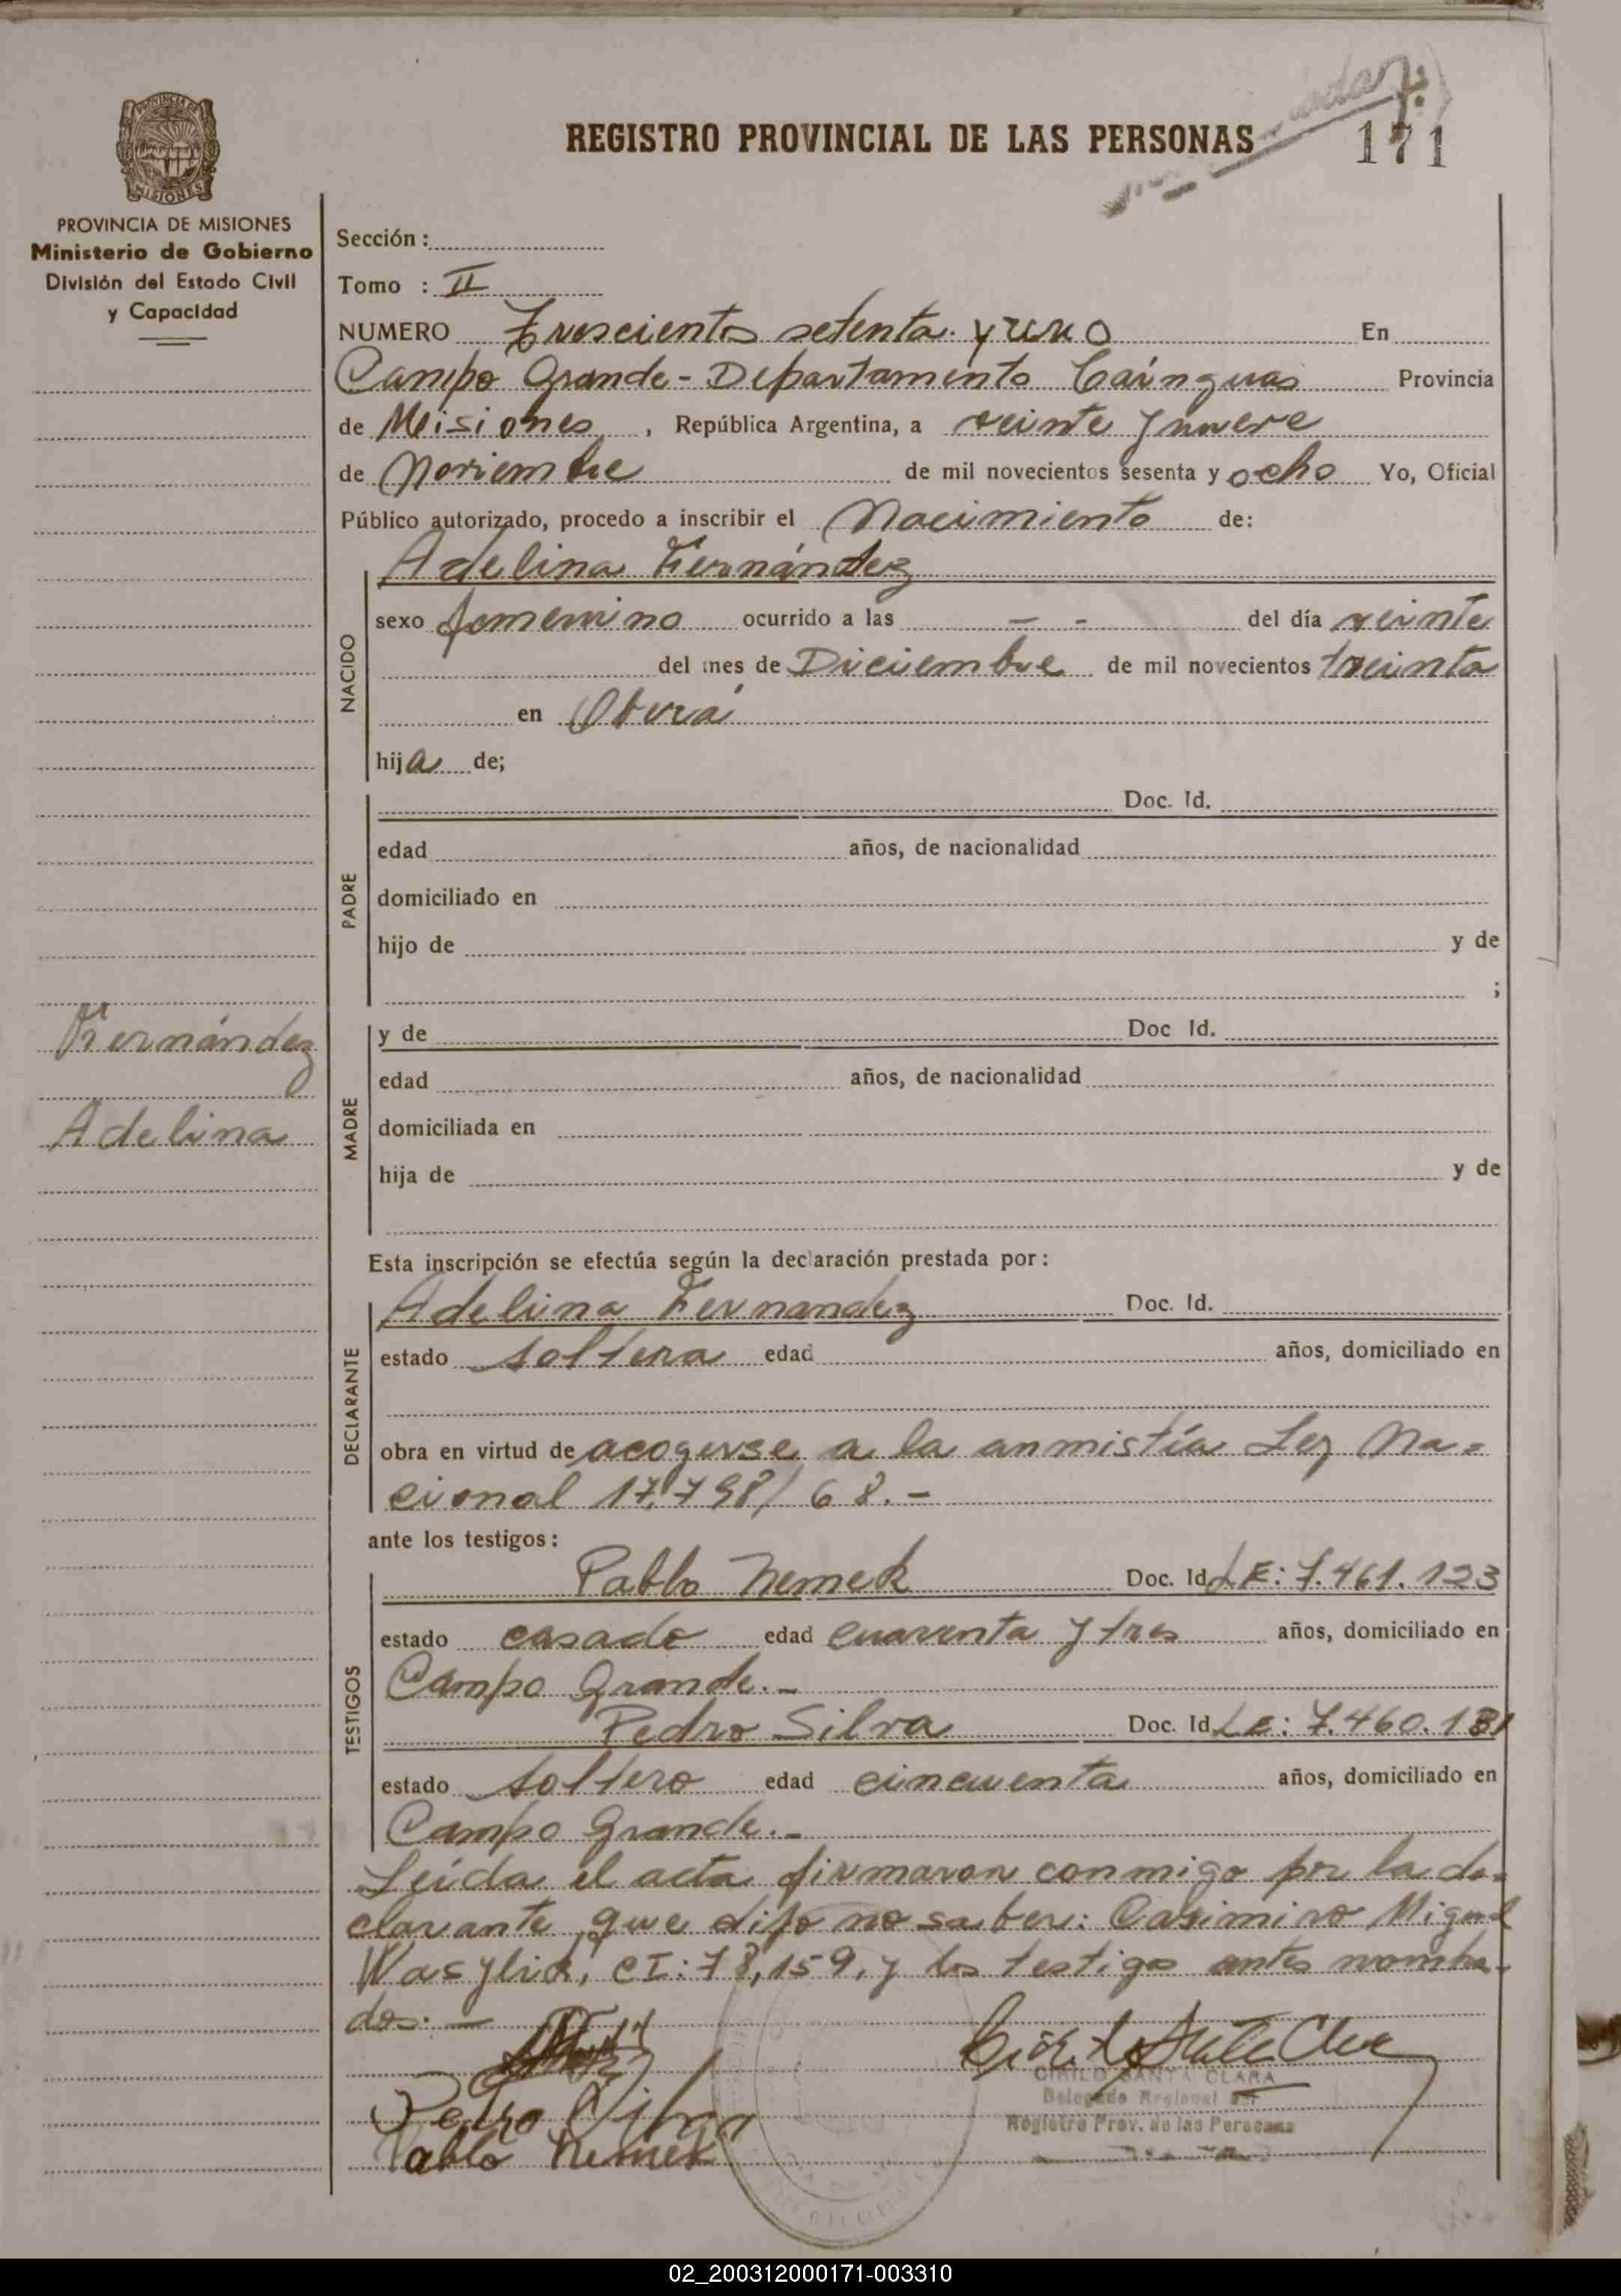 PROVINCIA DE MISIONES
PROVINCIA DE MISIONES
Ministerio de Gobierno
División del Estado Civil
y Capacidad
REGISTRO PROVINCIAL DE LAS PERSONAS
171
Sección :
Tomo : II
NUMERO Trescientos setenta y uno En
Campo Grande - Departamento Cainguas Provincia
de Misiones, República Argentina, a veinte y nueve
de Noviembre de mil novecientos sesenta y ocho Yo, Oficial
Público autorizado, procedo a inscribir el Nacimiento de:
NACIDO
Adelina Fernández
sexo femenino ocurrido a las — - del día veinte
del mes de Diciembre de mil novecientos treinta
en Oberá
hija de;
PADRE
Doc. Id.
edad años, de nacionalidad
domiciliado en
hijo de y de
;
Fernández
Adelina
MADRE
y de Doc Id.
edad años, de nacionalidad
domiciliada en
hija de y de
Esta inscripción se efectúa según la declaración prestada por :
DECLARANTE
Adelina Fernandez Doc. Id.
estado soltera edad años, domiciliado en
obra en virtud de acogerse a la anmistía Ley Na=
cional 17,798/68.-
ante los testigos :
TESTIGOS
Pablo Nemek Doc. Id LE: 7.461.123
estado casado edad cuarenta y tres años, domiciliado en
Campo Grande.-
Pedro Silva Doc. Id LE: 7.460.181
estado soltero edad cincuenta años, domiciliado en
Campo Grande.-
Leida el acta firmaron conmigo por la de=
clarante que dijo no saber: Casimiro Miguel
Wasyluk, CI: 78,159, y los testigos antes nombra-
dos.—
Pedro Silva
Pablo Nemek
Cirilo Santa Clara
CIRILO SANTA CLARA
Delegado Regional
Registro Prov. de las Personas
02_200312000171-003310